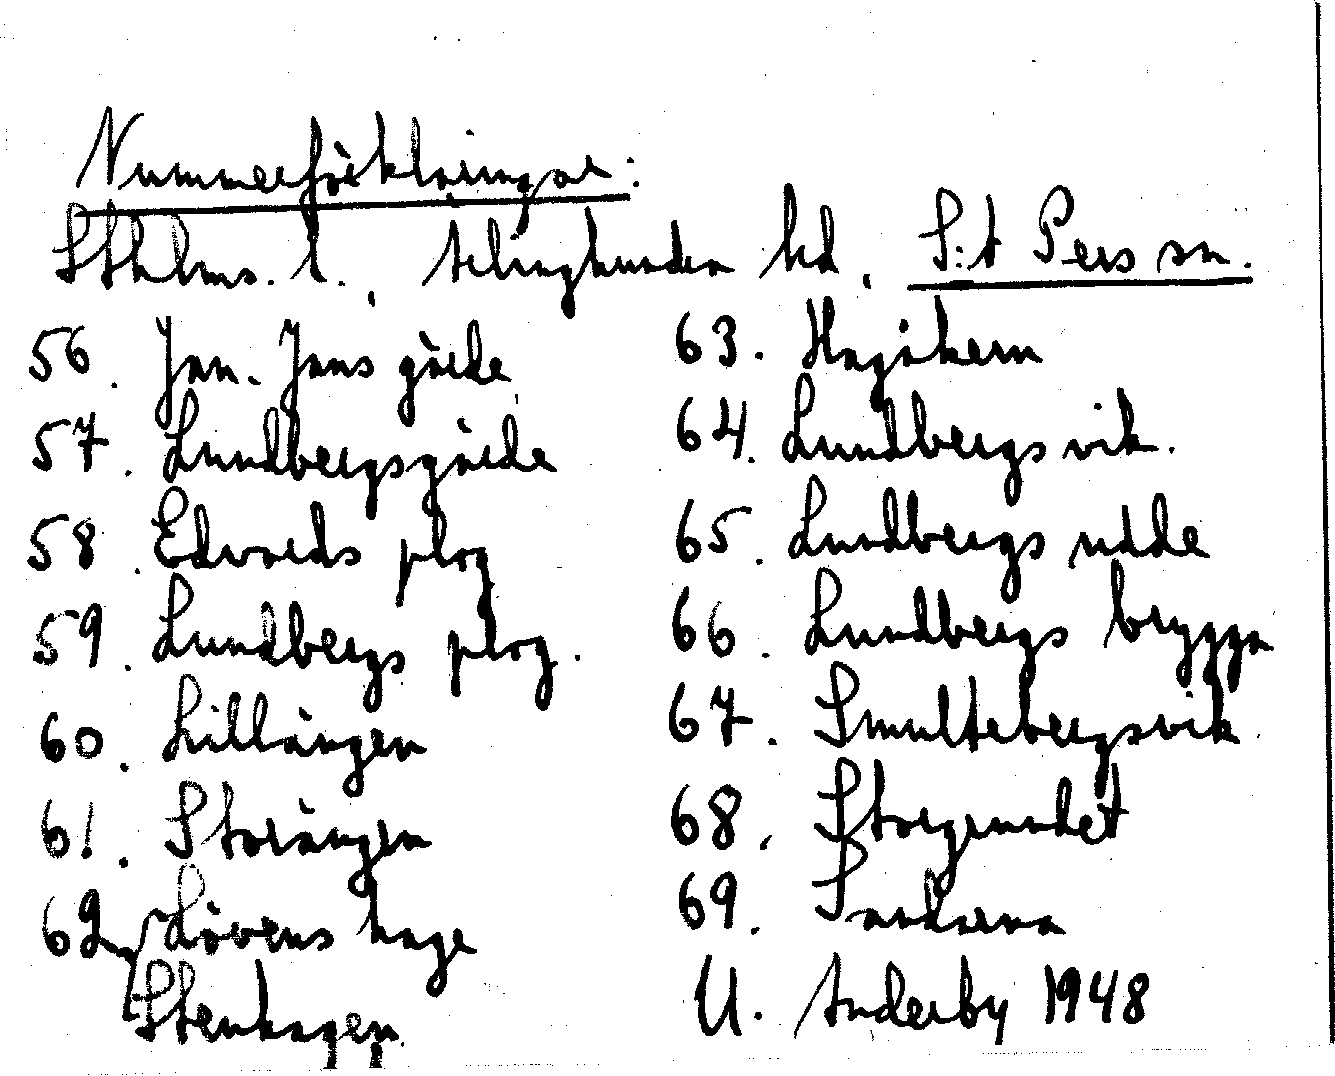 Nummerförklaringar:
Sthlms. l., Ärlinghundra hd, S:t Pers sn.
56. Jan. Jans gärde
57. Lundbergsgärde
58. Edvards plog
59. Lundbergs plog.
60. Lillängen
61. Storängen
62. Lövens hage
Stenhagen
63. Hagåkern
64. Lundbergs vik.
65. Lundbergs udde
66. Lundbergs brygga
67. Smultebergsvik
68. Storgrundet
69.
U. Anderby 1948